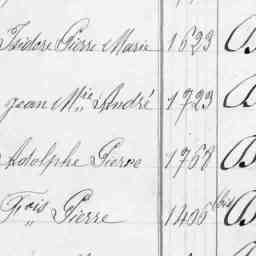 Isidore Pierre Marie 1623 B
Jean Mie André 1723 B
Adolphe Pierre 1768 B
Fçois Pierre 1406 bis B